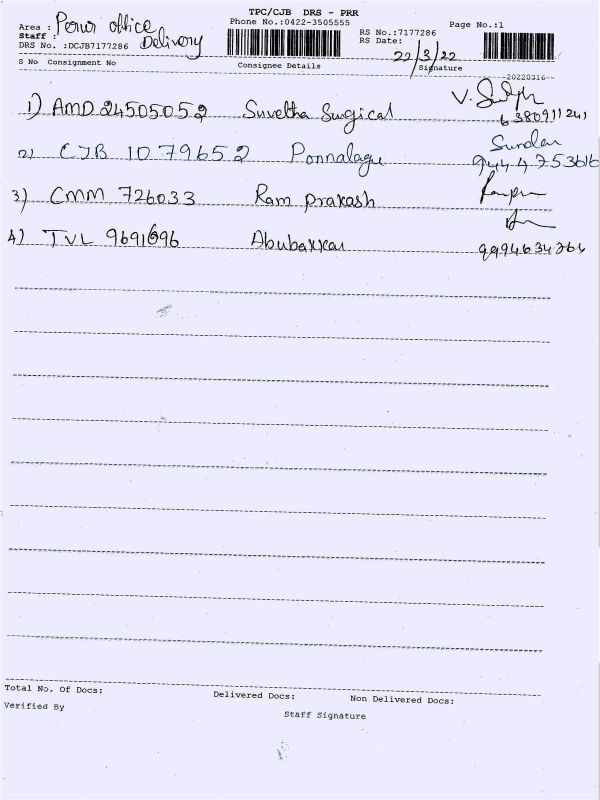 TPC/CJB DRS - PRR
Area : Perur office
Phone No.:0422-3505555
Page No.:1
Staff : Delivery
RS No.:7177286
DRS No. :DCJB7177286
RS Date: 22/3/22
S No Consignment No Consignee Details Signature
20220316
1) AMD 24505052 Suvetha Surgical
6380911241
2) CJB 1079652 Ponnalagu Sundar
9444753616
3) CMM 726033 Ram prakash
4) TVL 9691696 Abubakkar 9994634264
Total No. Of Docs: Delivered Docs: Non Delivered Docs:
Verified By Staff Signature